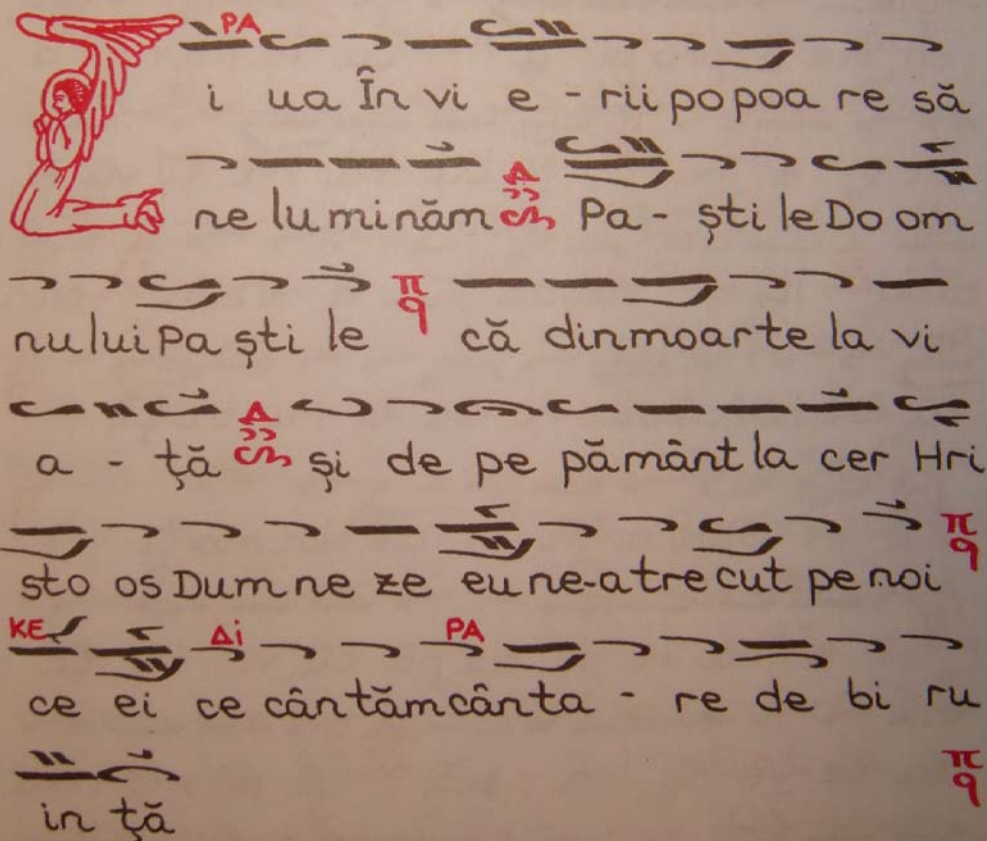 PA
i ua În vi e - rii po poa re să
ne lu mi năm Pa - ști le Do om
nu lui Pa ști le π q că din moar te la vi
a - ță și de pe pă mânt la cer Hri
sto os Dum ne ze eu ne-a tre cut pe noi π q
KE Δi PA
ce ei ce cân tăm cân ta - re de bi ru
in ță π q